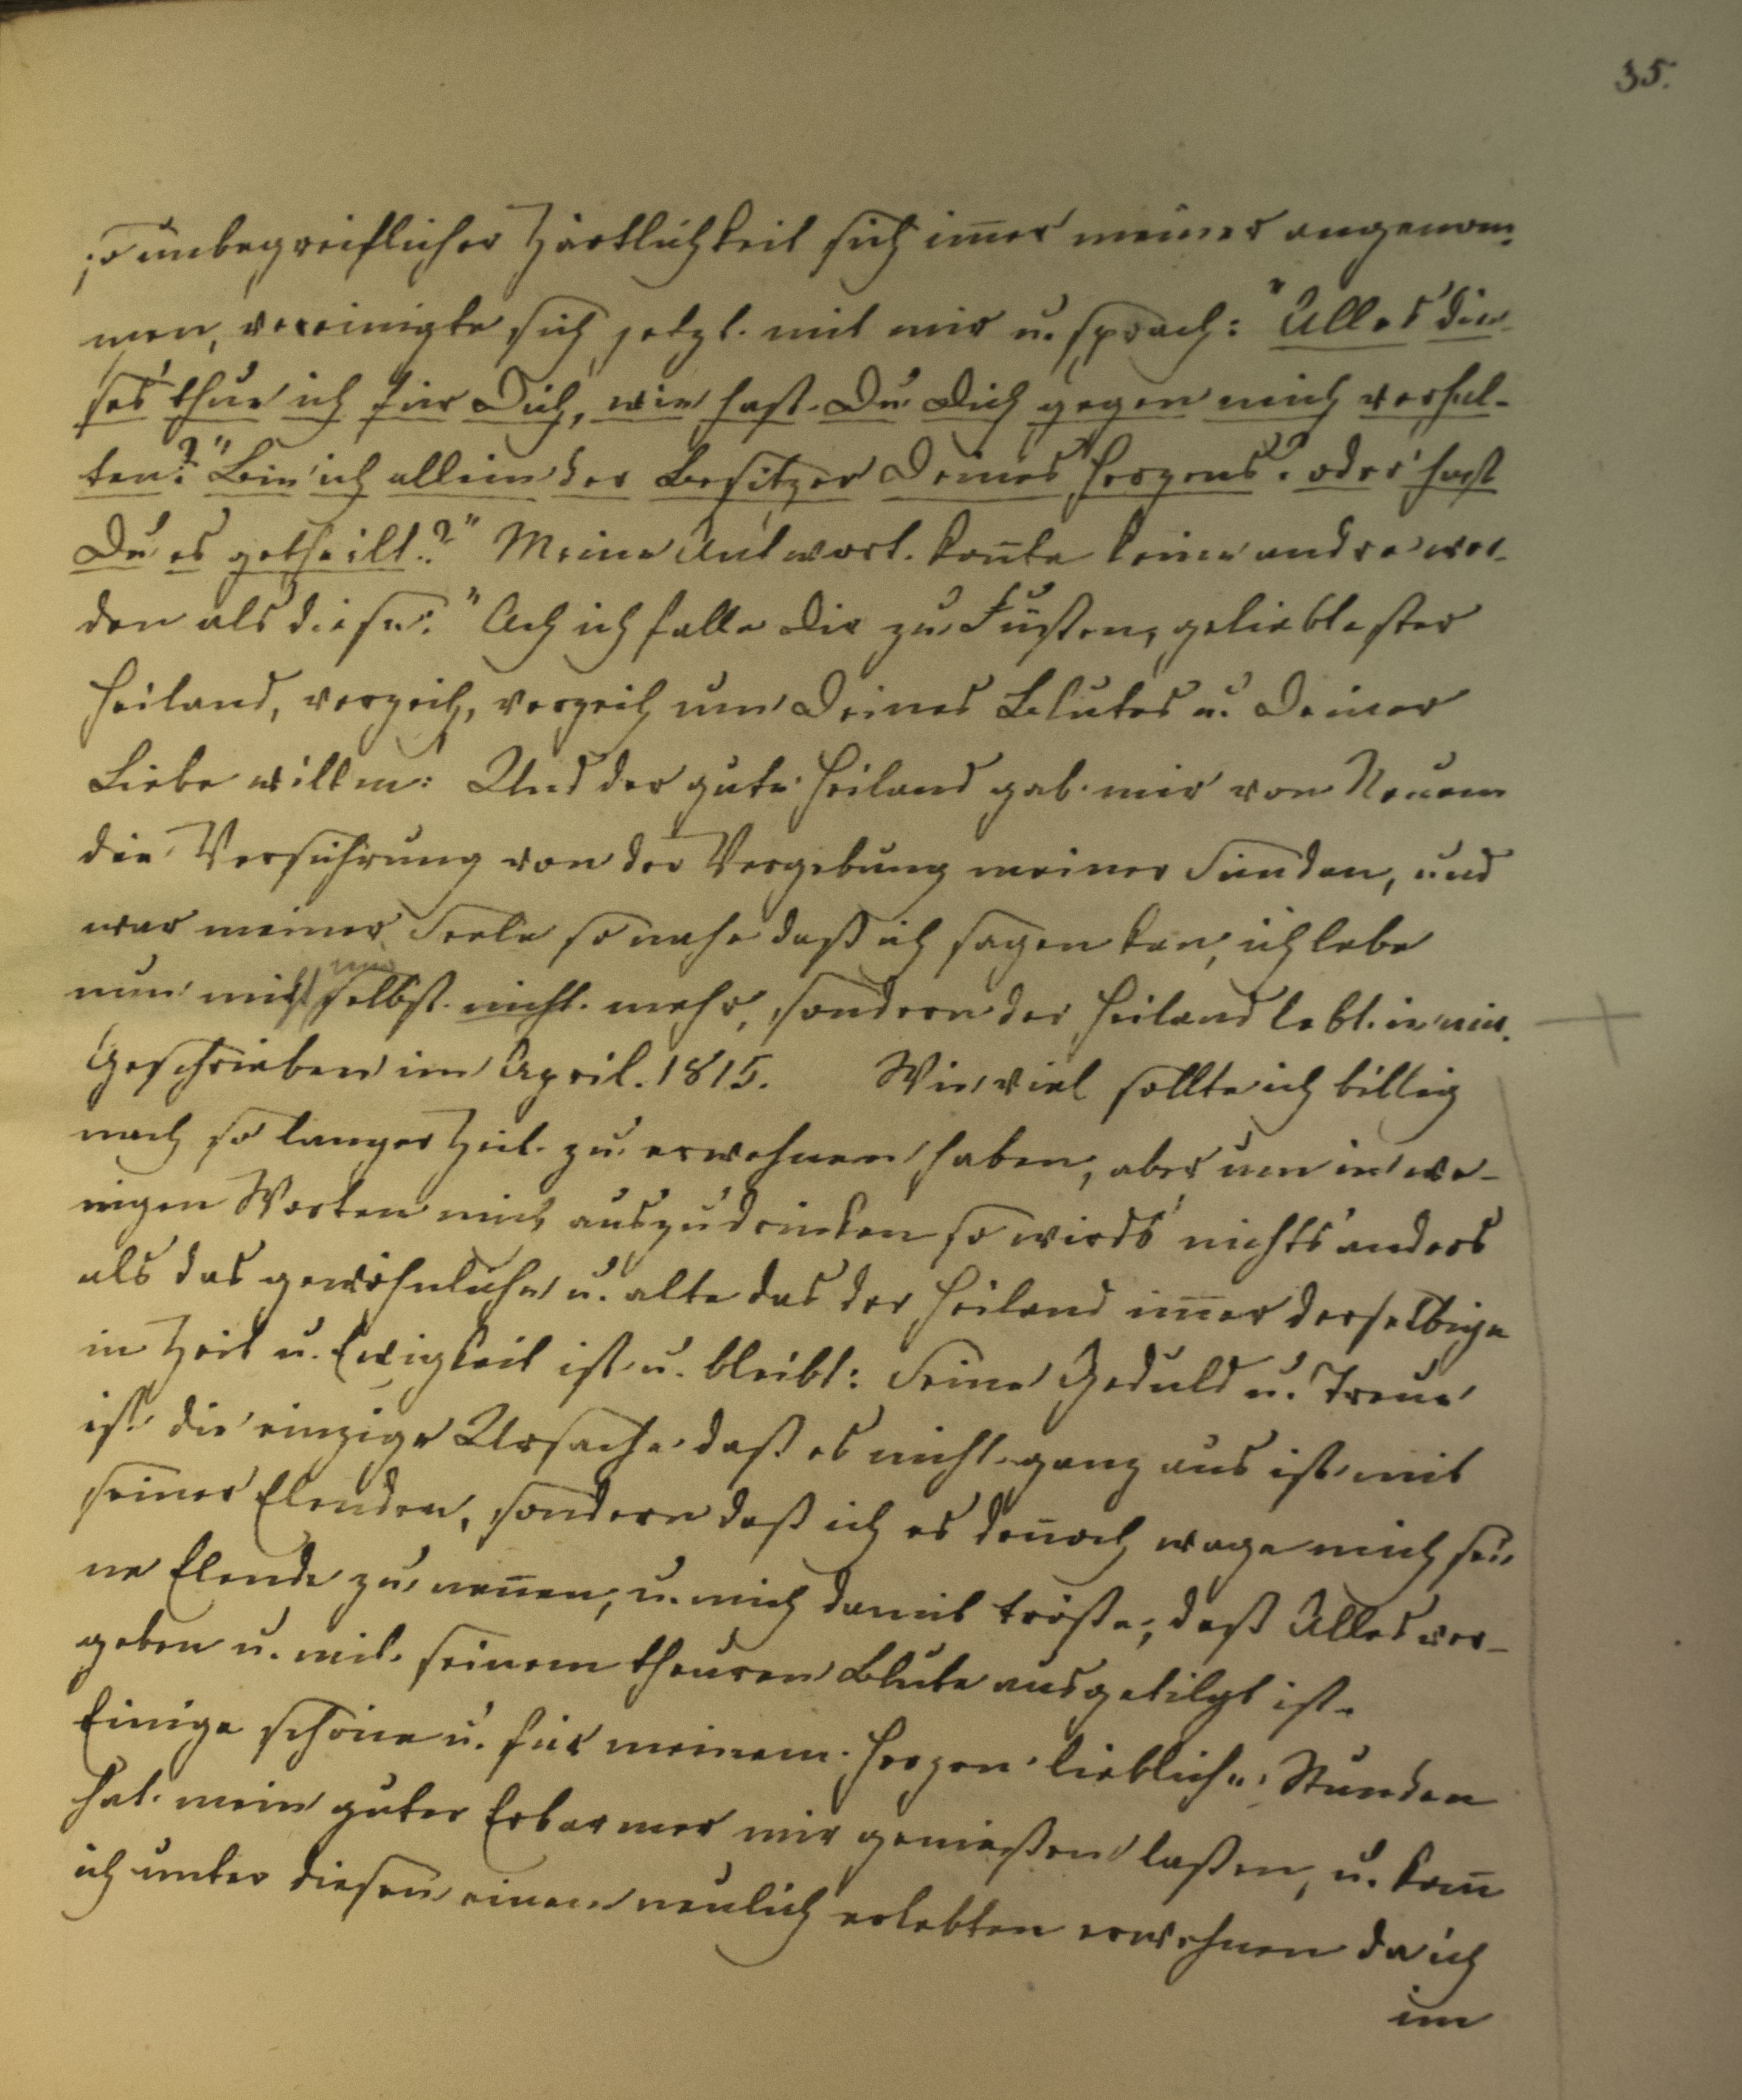 35.
so unbegreiflicher Zärtlichkeit sich im̅er meiner angenom¬
men, vereinigte sich jetzt mit mir u. sprach: "Alles die¬
ses thue ich für Dich, wie hast Du Dich gegen mich verhal-
ten?" "Bin ich allein der Besitzer Deines Herzens? oder hast
Du es getheilt?" Meine Antwort kon̅te keine andre wer-
den als diese: "Ach ich falle Dir zu Füßen, geliebtester
Heiland, verzeih, verzeih um Deines Blutes u. Deiner
Liebe willen: Und der gute Heiland gab mir von Neuem
die Versicherung von der Vergebung meiner Sünden, und
war meiner Seele so nahe daß ich sagen kan, ich lebe
nun mir
nun selbst nicht mehr, sondern der Heiland lebt in mir.
Geschrieben im April. 1815. Wie viel sollte ich billig
nach so langer Zeit zu erwehnen haben, aber um in we-
nigen Worten mich auszudrücken so wirds nichts anders
als das gewöhnliche u. alte das der Heiland im̅er derselbige
in Zeit u. Ewigkeit ist u. bleibt: Seine Geduld u. Treue
ist die einzige Ursache daß es nicht ganz aus ist mit
seiner Elenden, sondern daß ich es den̅och wage mich sei¬
ne Elende zu nen̅en, u. mich damit tröste, daß Alles ver-
geben u. mit seinem theuren Blute ausgetilgt ist.
Einige schöne u. für meinem Herzen liebliche Stunden
hat mein guter Erbarmer mir genießen laßen, u. kan̅
ich unter diesen einen neulich erlebten erwehnen da ich
im